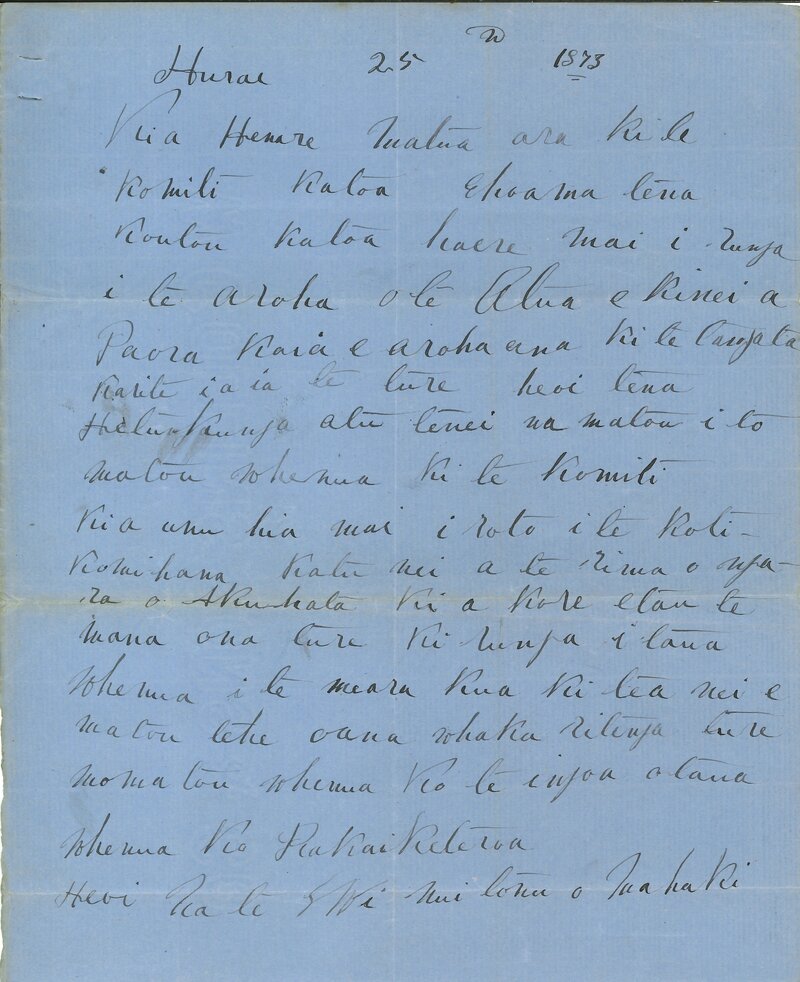 Hurae 25 1873
Kia Henare Matua ara ki te
Komiti Katoa Ehoama tena
Koutou Katoa haere mai i runga
i te aroha o te Atua e kinei a
Paora Kaia e aroha ana ki te tangata
Karite ia ia te ture heoi tena
He tunkunga atu tenei na matou i to
matou whenua ki te Komiti
Kia unu hia mai i roto i te Koti-
Komihana Katu nei a te rima o nga-
ra o Akuhata Ki a kore etau te
mana ona ture Ki runga i taua
whenua i te meara Kua Ki tea nei e
matou tehe oana whaka ritenga ture
momatou whenua Ko te ingoa otaua
whenua Ko Rakaiketeroa
Heoi Na te Ewi nui tonu o Mahaki